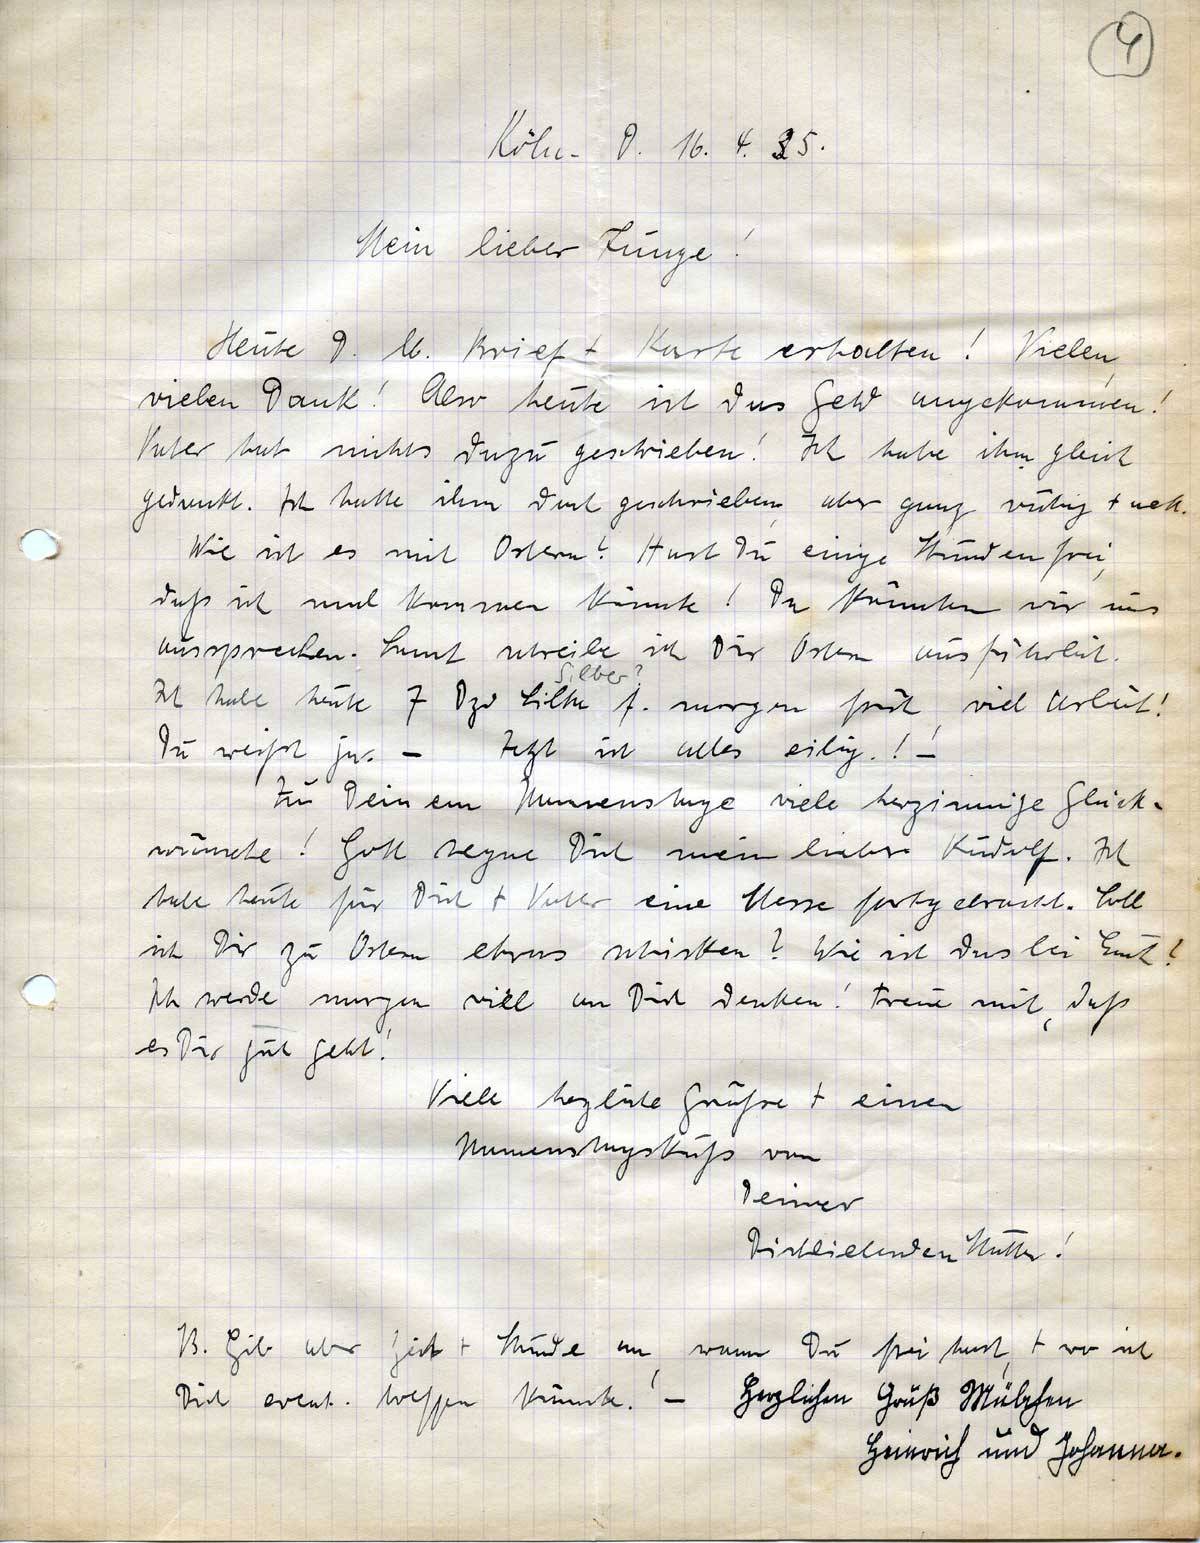 4
Köln - d. 16. 4. 35.
Mein lieber Junge!
Heute d. lb. Brief + Karte erhalten! Vielen,
vielen Dank! Also heute ist das Geld angekommen!
Vater hat nichts dazu geschrieben! Ich habe ihm gleich
gedankt. Ich hatte ihm geschrieben, aber ganz ruhig + nett.
Wie ist es mit Ostern? Hast Du einige Stunden frei,
daß ich mal kommen könnte! Da könnten wir uns
aussprechen. Sonst schreibe ich Dir Ostern ausführlich.
Silber?
Ich habe heute 7 Dzd f. morgen früh, viel Arbeit!
Du weißt ja. – Jetzt ist alles eilig.! –
Zu Deinem Namenstage viele herzinnige Glück-
wünsche! Gott segne Dich mein lieber Rudolf. Ich
habe heute für Dich + Vater eine Messe Soll
ich Dir zu Ostern etwas schicken? Wie ist das bei Euch?
Ich werde morgen viel an Dich denken! Freue mich, daß
es Dir gut geht!
Viele herzliche Grüße + einen
Namenstagskuß von
Deiner
Dichliebenden Mutter!
Gib aber Zeit + Stunde an, wann Du frei hast, + wo ich
Dich event. treffen könnte! – Herzlichen Gruß
Heinrich und Johanna.